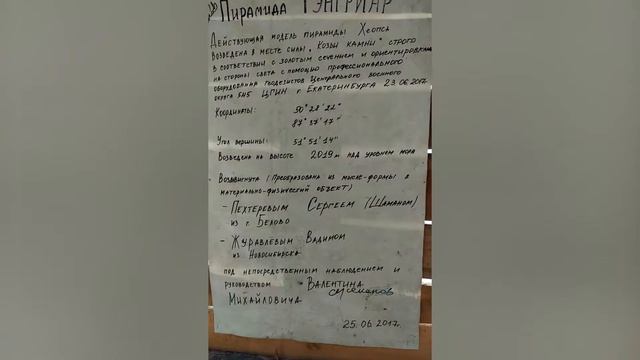 Пирамида Тэнгриар
Действующая модель пирамиды Хеопса
возведена в месте силы „Козьи камни" строго
в соответствии с золотым сечением и ориентирована
на стороны света с помощью профессионального
оборудования геодезистов Центрального военного
округа ЦГИН г. Екатеринбурга 23.06.2017г.
Координаты: 50° 28' 22"
87° 37' 17"
Угол вершины: 51° 51' 14"
Возведена на высоте 2019м над уровнем моря
Воздвигнута (Преобразована из мысле-формы в
материально-физический объект)
- Пехтеревым Сергеем (Шаманом)
из г. Белово
- Журавлевым Вадимом
из Новосибирска
под непосредственным наблюдением и
руководством - Валентина
Михайловича
25.06.2017г.